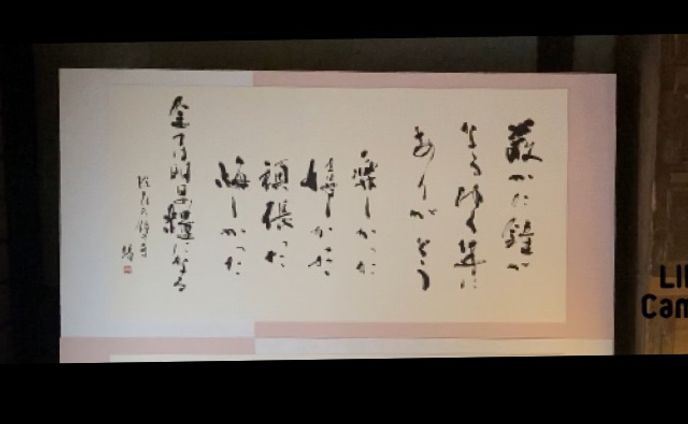 厳かに鐘が
なるゆく年に
ありがとう
楽しかった
嬉しかった
頑張った
悔しかった
全ては明日の糧になる
LI
Can